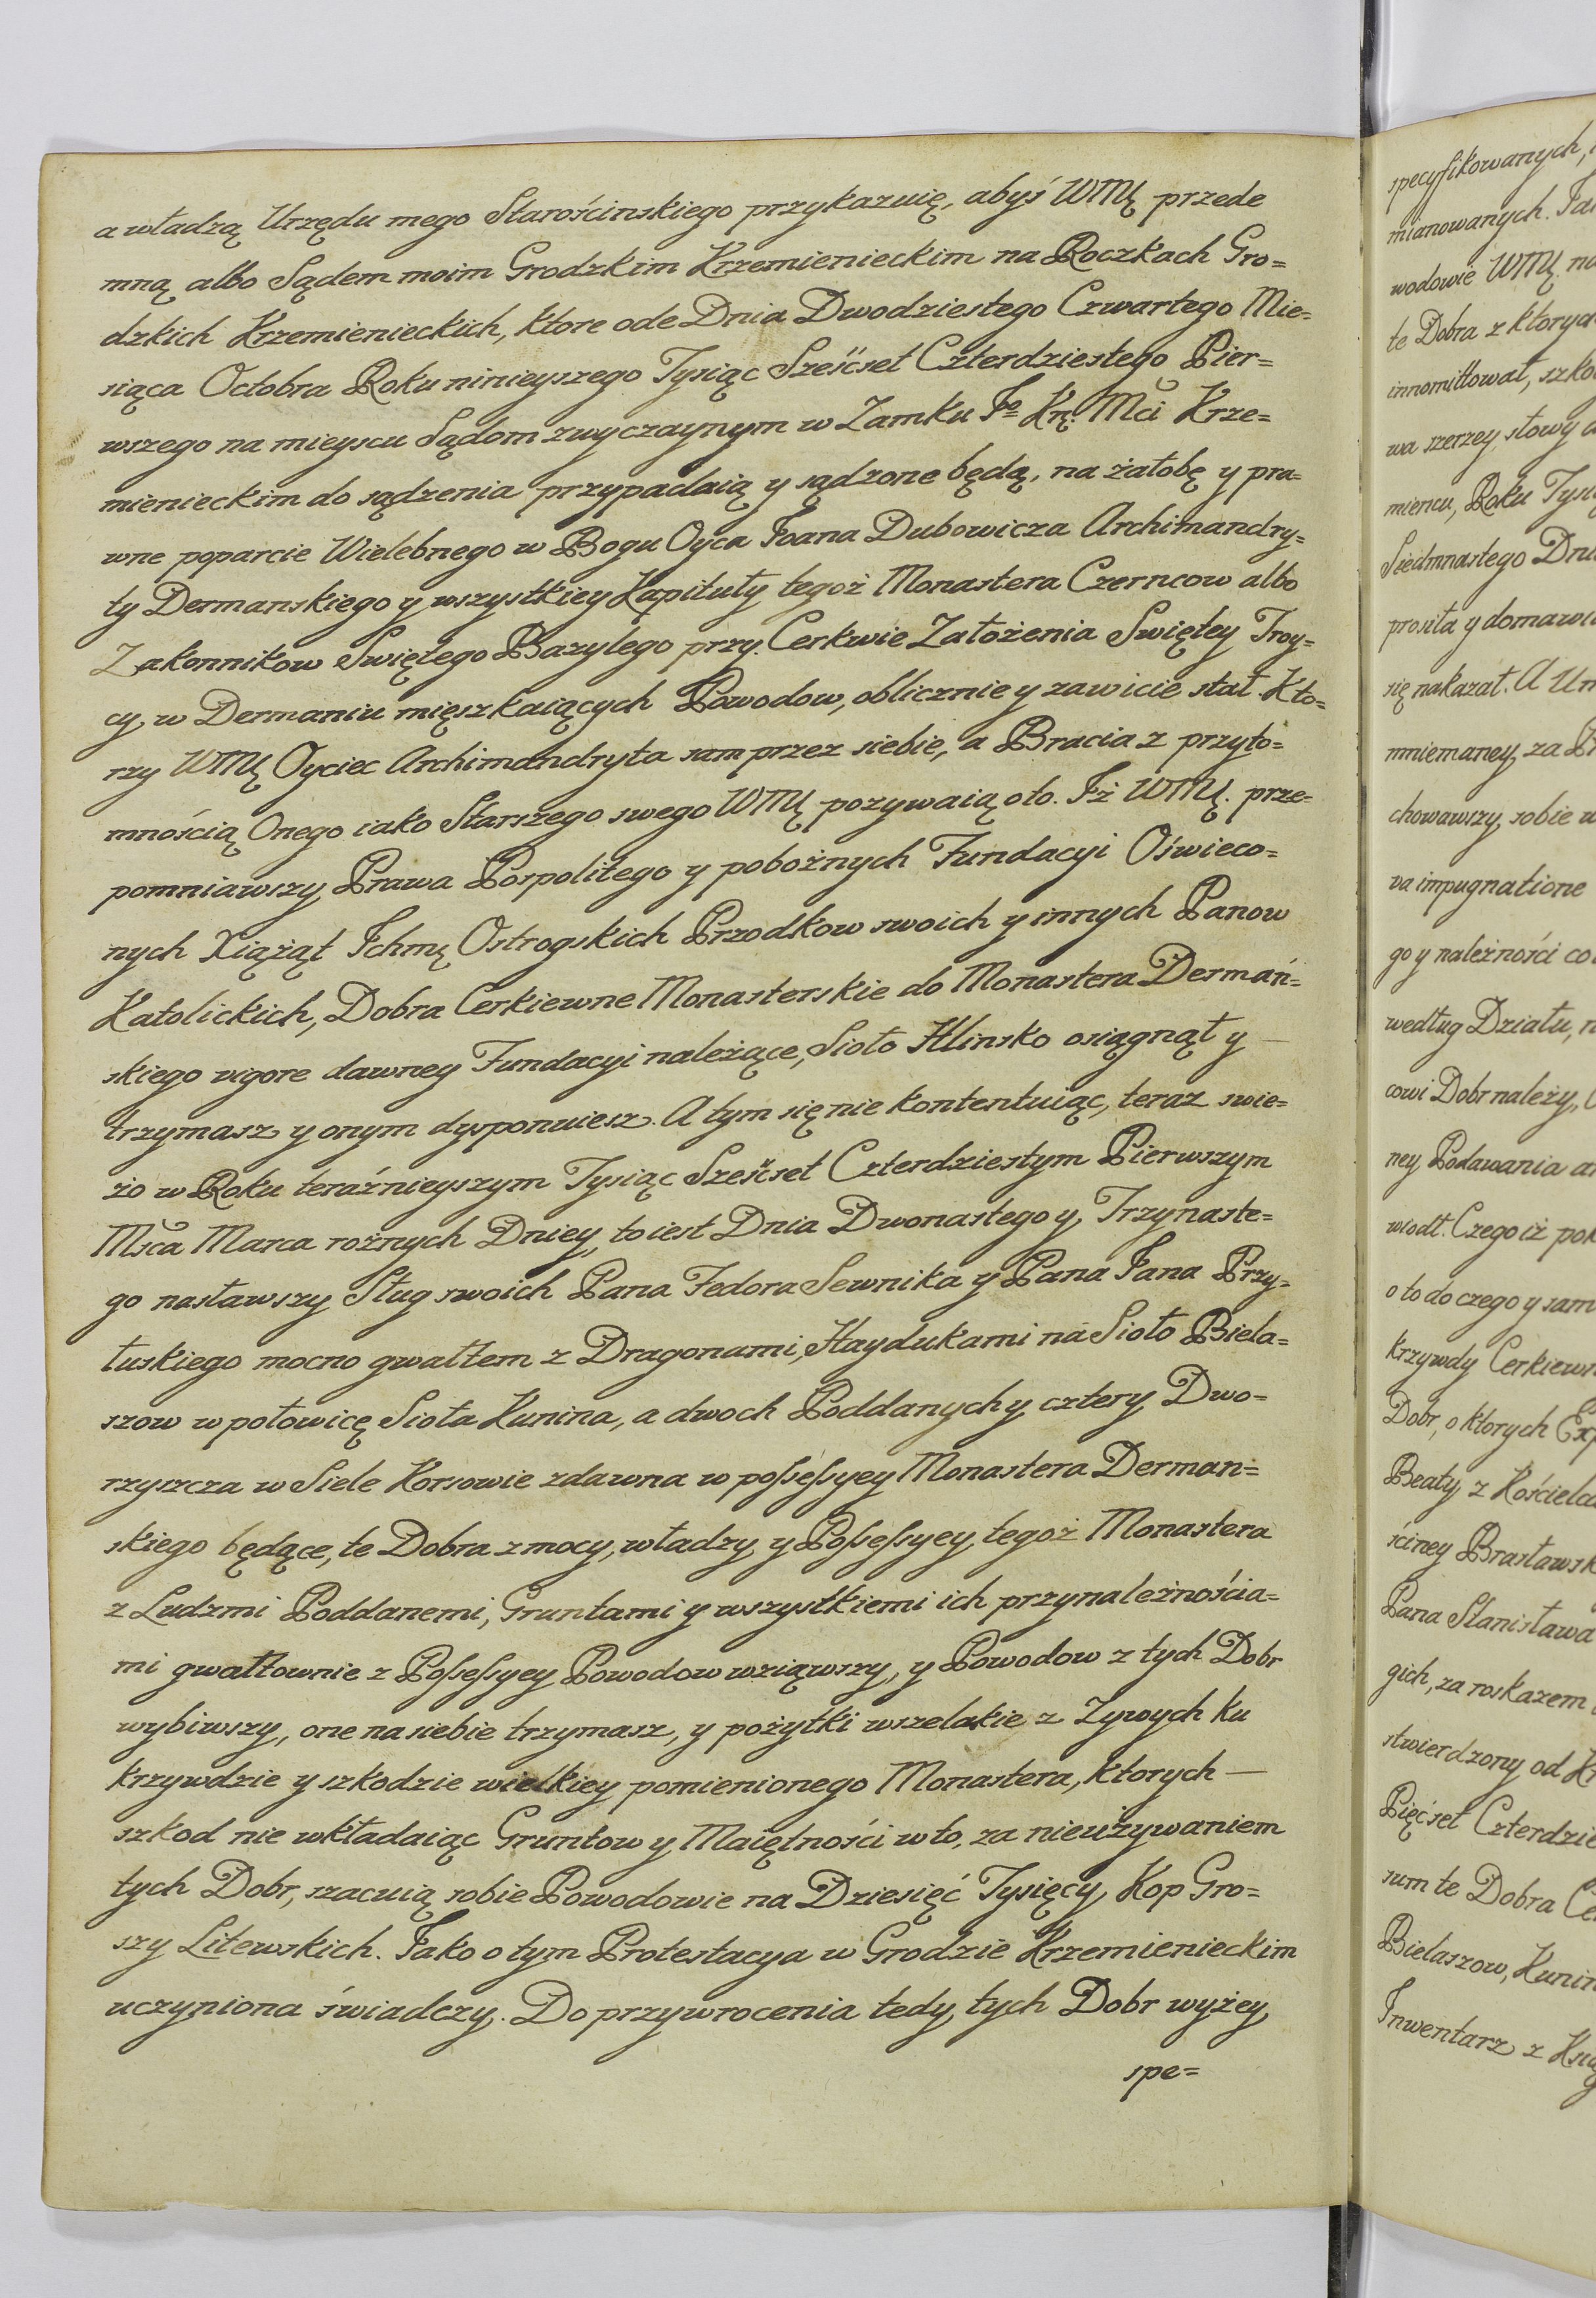 a władzą Urzędu mego Starościnskiego przykazuię, abyś WMĘ przede
mną albo Sądem moim Grodzkim Krzemienieckim na Roczkach Gro=
dzkich Krzemienieckich, ktore ode Dnia Dwodziestego Czwartego Mie=
siąca Octobra Roku ninieyszego Tysiąc Sześćset Czterdziestego Pier=
wszego na mieyscu Sądom zwyczaynym w Zamku Jº Kn: Mci Krze=
mienieckim do sądzenia przypadaią y sądzone będą, na żałobę y pra=
wne poparcie Wielebnego w Bogu Oyca Joana Dubowicza Archimandry=
ty Dermanskiego y wszystkiey Kapituły tegoż Monastera Czerncow albo
Zakonnikow Swiętego Bazylego przy Cerkwie Założenia Swiętey Troy=
cy w Dermaniu mięszkaiących Powodow, oblicznie y zawicie stał. Kto=
rzy WMĘ Oyciec Archimandryta sam przez siebie, a Bracia z przyto=
mnością Onego iako Starszego swego WMĘ pozywaią oto. Iż WMĘ. prze=
pomniawszy Prawa Pospolitego y pobożnych Fundacyi Oświeco=
nych Xiążąt Ichmę Ostrogskich Przodkow swoich y innych Panow
Katolickich, Dobra Cerkiewne Monasterskie do Monastera Dermań=
skiego vigore dawney Fundacyi należące, Sioło Hlinsko osiągnął y —
trzymasz y onym dysponuiesz. A tym się nie kontentuiąc, teraz swie=
żo w Roku teraźnieyszym Tysiąc Sześćset Czterdziestym Pierwszym
Msca Marca rożnych Dniey, to iest Dnia Dwonastego y Trzynaste=
go nasławszy Sług swoich Pana Fedora Sewnika y Pana Jana Przy=
łuskiego mocno gwałtem z Dragonami, Haydukami na Sioło Biela=
szow w połowicę Sioła Kunina, a dwoch Poddanych y cztery Dwo=
rzyszcza w Siele Korsowie zdawna w possessyey Monastera Derman=
skiego będące, te Dobra z mocy, władzy y Possessyey tegoż Monastera
z Ludzmi Poddanemi, Gruntami y wszystkiemi ich przynależnościa=
mi gwałtownie z Possessyey Powodow wziąwszy, y Powodow z tych Dobr
wybiwszy, one na siebie trzymasz, y pożytki wszelakie z Zywych ku
krzywdzie y szkodzie wielkiey pomienionego Monastera, ktorych —
szkod nie wkładaiąc Gruntow y Maiętności w to, za nieużywaniem
tych Dobr, szacuią sobie Powodowie na Dziesięć Tysięcy Kop Gro=
szy Litewskich. Jako o tym Protestacya w Grodzie Krzemienieckim
uczyniona świadczy. Do przywrocenia tedy tych Dobr wyżey
spe=
specyfikowanych,
mianowanych.
wodowie WMĘ
te Dobra z
innomittował,
wa szerzey słowy
miencu, Roku
Siedmnastego
prosiła y
się nakazał. A
mniemaney za
chowawszy sobie
va impugnatione
go y należności
według Działu,
cowi Dobr należy,
ney Podawania
wiodł. Czego iż
o to do czego y
krzywdy
Dobr, o ktorych
Beaty z
ściney
Pana Stanisława
gich, za roskazem
stwierdzony od
Pięćset
sum te Dobra
Bielaszow,
Inwentarz z